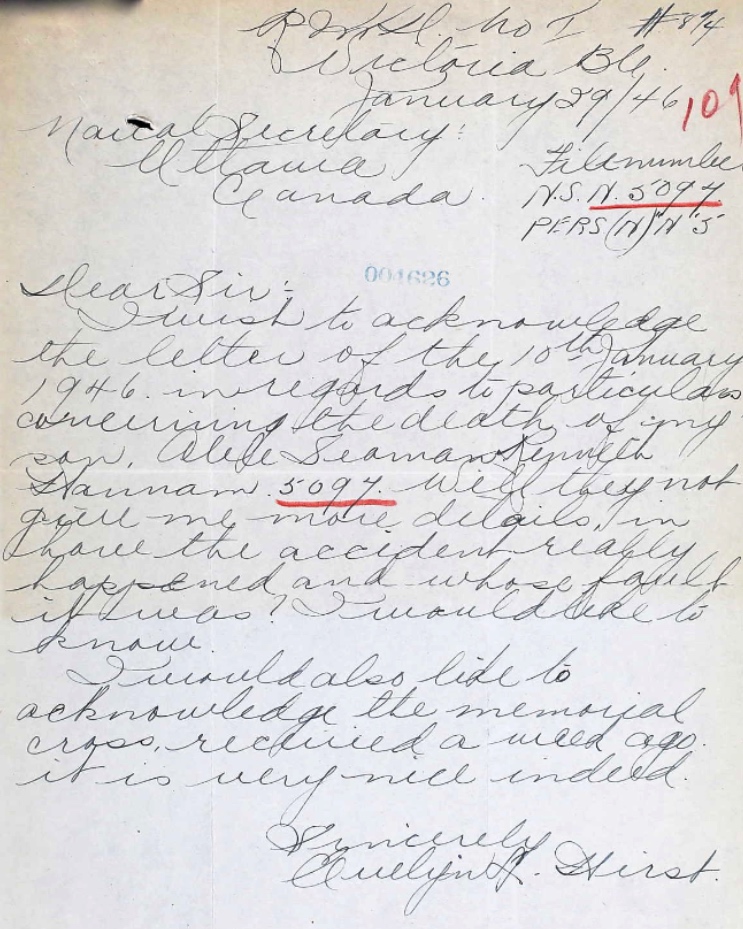 R.M.D. No 1 #874
Victoria B.C.
January 29/46
109
Naval Secretary:
Ottawa
Canada.
File number
N.S. N. 5097
PERS(N) N 5
001626
Dear Sir:-
I wish to acknowledge
the letter of the 10th January
1946. in regards to particulars
concerning the death of my
son, Able Seaman Kenneth
Hannam. 5097. Will they not
give me more details, in
how the accident really
happened and whose fault
it was? I would like to
know.
I would also like to
acknowledge the memorial
cross, received a week ago.
it is very nice indeed.
Sincerely
Evelyn F. Hirst.